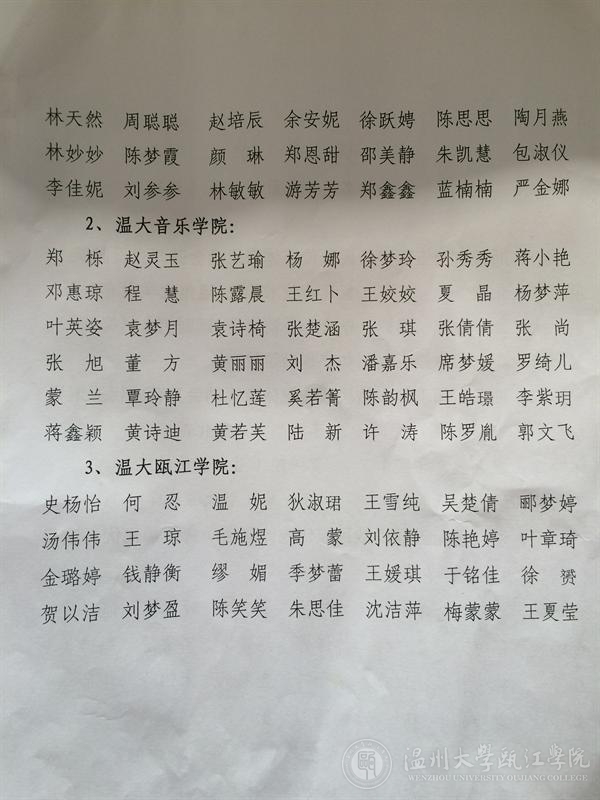 林天然 周聪聪 赵培辰 余安妮 徐跃娉 陈思思 陶月燕
林妙妙 陈梦霞 颜 琳 郑恩甜 邵美静 朱凯慧 包淑仪
李佳妮 刘参参 林敏敏 游芳芳 郑鑫鑫 蓝楠楠 严金娜
2、温大音乐学院：
郑 栎 赵灵玉 张艺瑜 杨 娜 徐梦玲 孙秀秀 蒋小艳
邓惠琼 程 慧 陈露晨 王红卜 王姣姣 夏 晶 杨梦萍
叶英姿 袁梦月 袁诗椅 张楚涵 张 琪 张倩倩 张 尚
张 旭 董 方 黄丽丽 刘 杰 潘嘉乐 席梦媛 罗绮儿
蒙 兰 覃玲静 杜忆莲 奚若箐 陈韵枫 王皓璟 李紫玥
蒋鑫颖 黄诗迪 黄若芙 陆 新 许 涛 陈罗胤 郭文飞
3、温大瓯江学院：
史杨怡 何 忍 温 妮 狄淑珺 王雪纯 吴楚倩 郦梦婷
汤伟伟 王 琼 毛施煜 高 蒙 刘依静 陈艳婷 叶章琦
金璐婷 钱静衡 缪 媚 季梦蕾 王媛琪 于铭佳 徐 赟
贺以洁 刘梦盈 陈笑笑 朱思佳 沈洁萍 梅蒙蒙 王夏莹
温州大学瓯江学院
WENZHOU UNIVERSITY OUJIANG COLLEGE